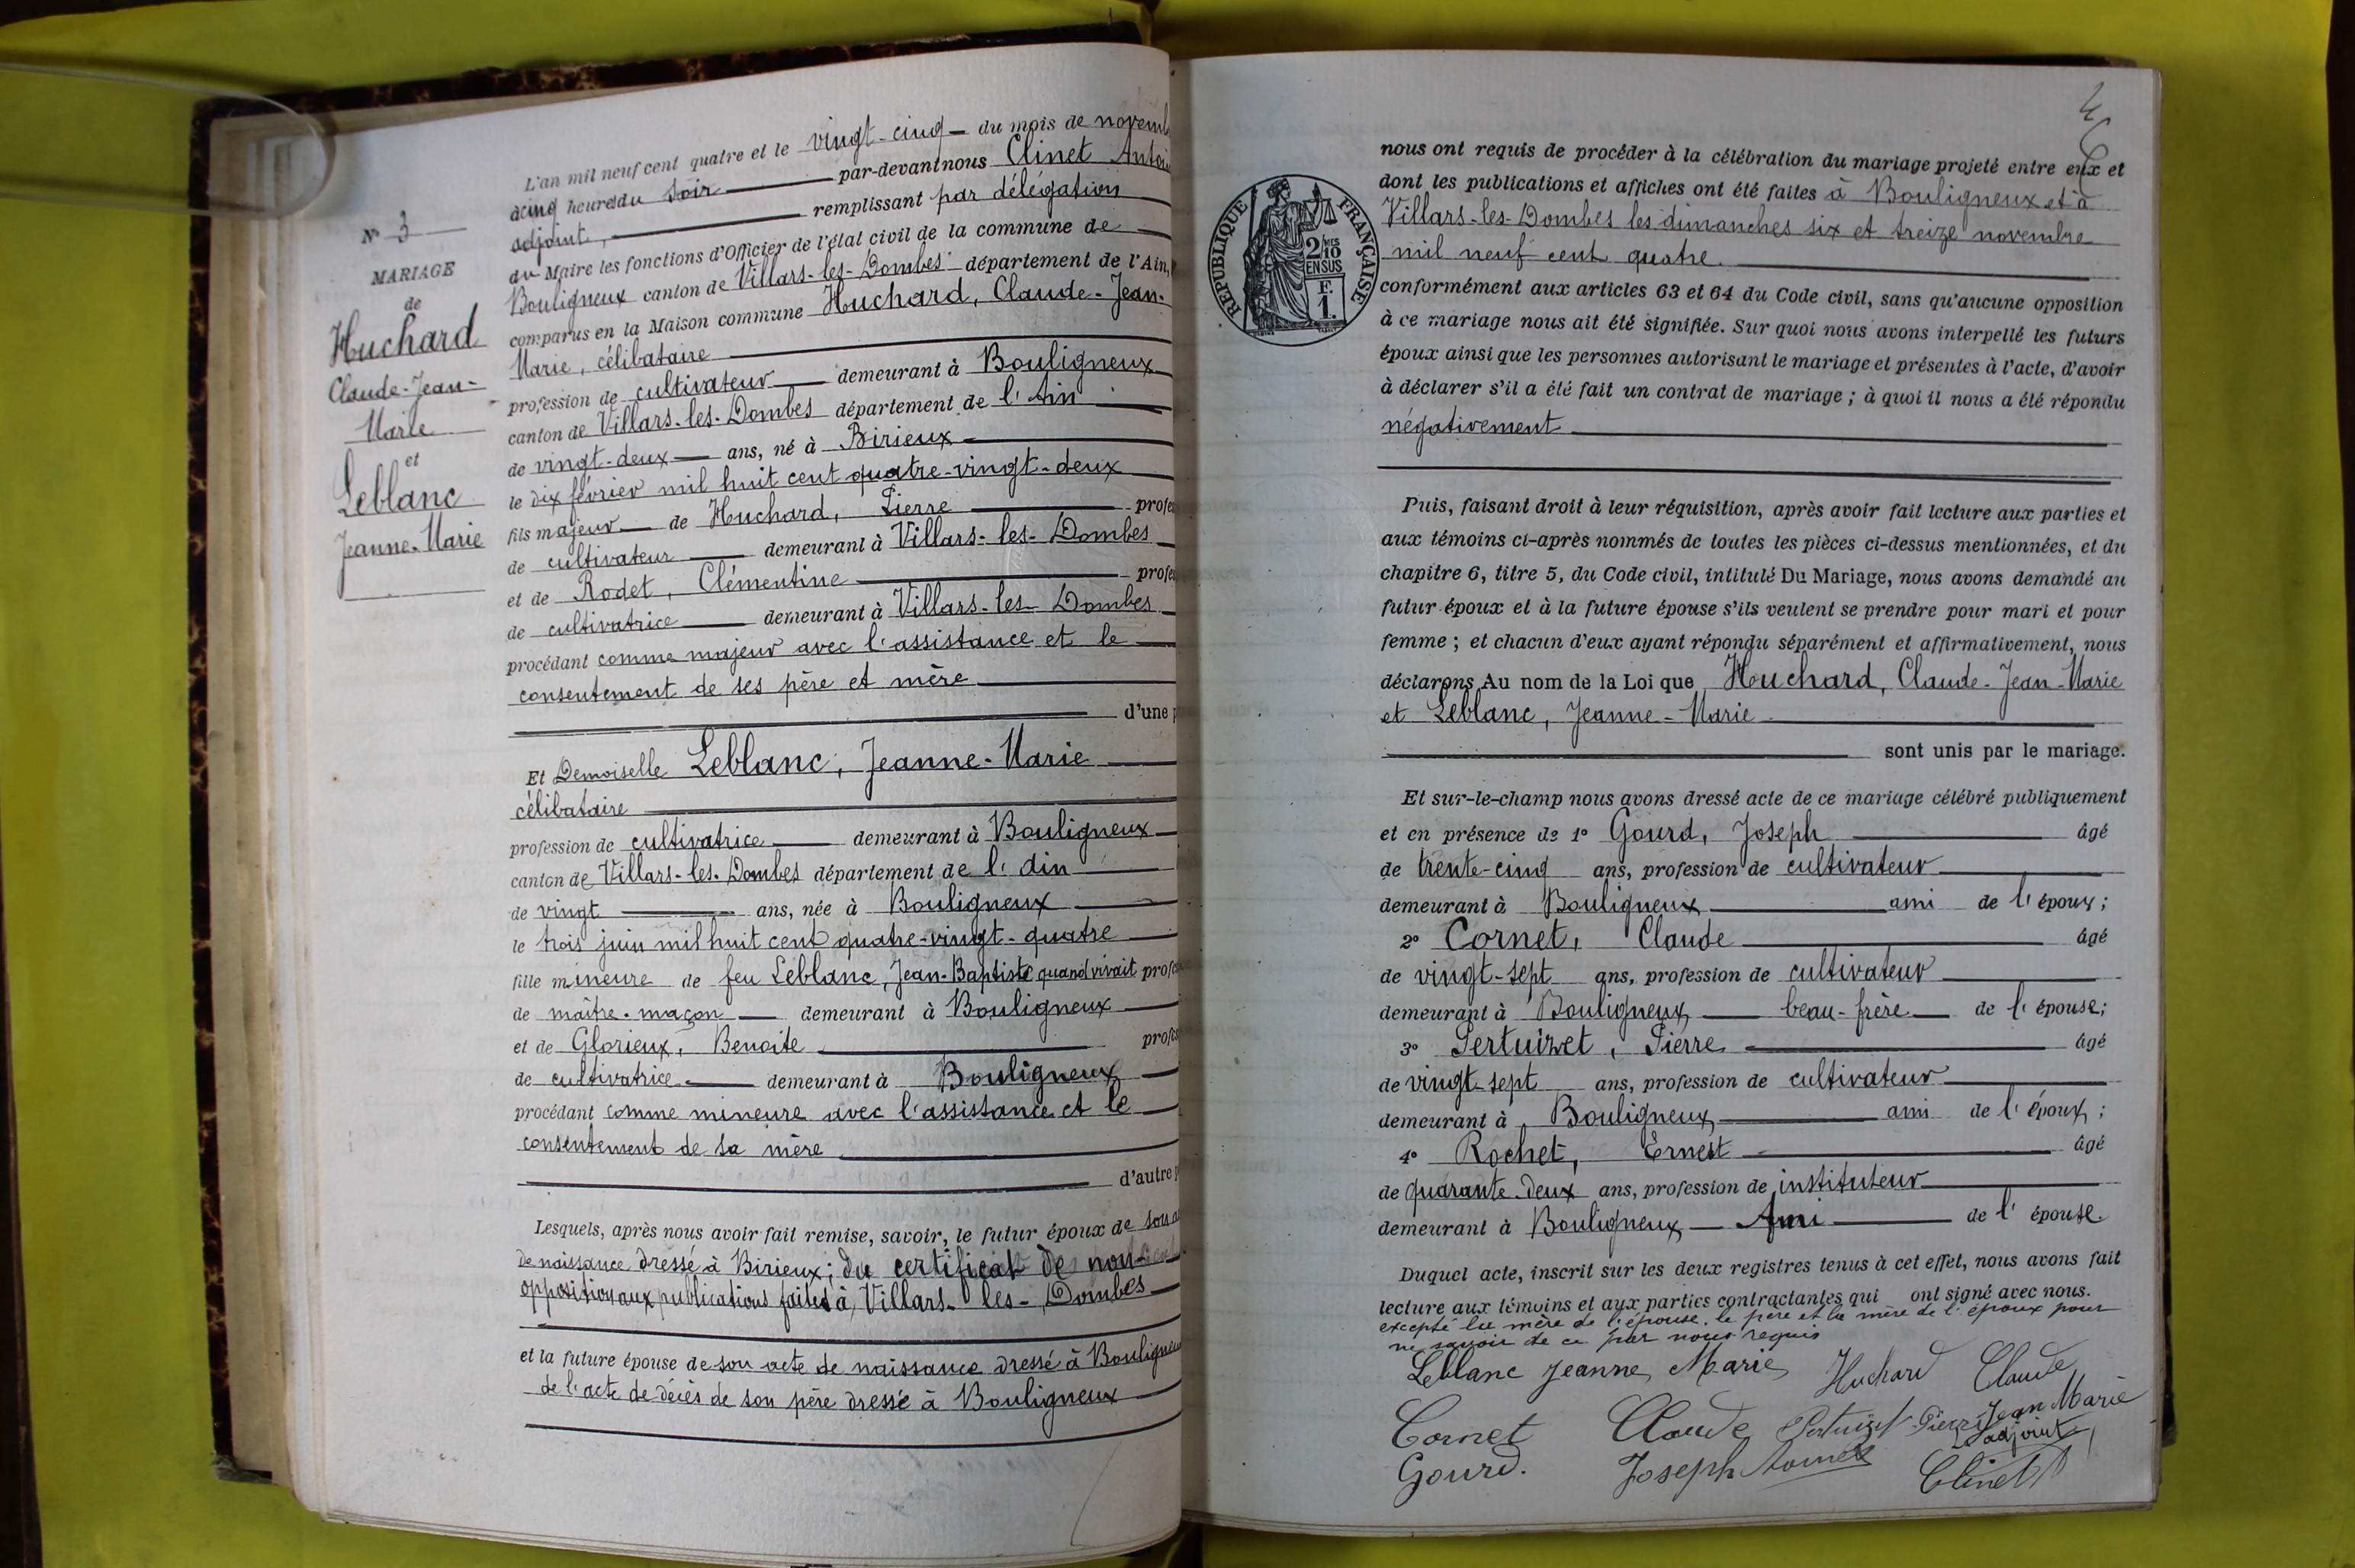 N° 3
MARIAGE
de
Huchard
Claude-Jean-
Marie
et
Leblanc
Jeanne-Marie
L'an mil neuf cent quatre et le vingt-cinq du mois de novemb
à cinq heures du soir par-devant nous Clinet Antoi
adjoint, remplissant par délégation
du Maire les fonctions d'Officier de l'état civil de la commune de
Bouligneux canton de Villars-les-Dombes département de l'Ain,
comparus en la Maison commune Huchard, Claude-Jean-
Marie, célibataire
profession de cultivateur demeurant à Bouligneux
canton de Villars-les-Dombes département de l'Ain
de vingt-deux ans, né à Birieux
le dix février mil huit cent quatre-vingt-deux
fils majeur de Huchard, Pierre profes
de cultivateur demeurant à Villars-les-Dombes
et de Rodet, Clémentine profes
de cultivatrice demeurant à Villars-les-Dombes
procédant comme majeur avec l'assistance et le
consentement de ses père et mère
d'une p
Et Demoiselle Leblanc, Jeanne-Marie
célibataire
profession de cultivatrice demeurant à Bouligneux
canton de Villars-les-Dombes département de l'Ain
de vingt ans, née à Bouligneux
le trois juin mil huit cent quatre-vingt-quatre
fille mineure de feu Leblanc, Jean-Baptiste quand vivait profes
de maître-maçon demeurant à Bouligneux
et de Glorieux, Benoite profes
de cultivatrice demeurant à Bouligneux
procédant comme mineure avec l'assistance et le
consentement de sa mère
d'autre p
Lesquels, après nous avoir fait remise, savoir, le futur époux de son a
de naissance dressé à Birieux; du certificat de non-
opposition aux publications faites à Villars-les-Dombes
et la future épouse de son acte de naissance dressé à Bouligneu
de l'acte de décès de son père dressé à Bouligneux
RÉPUBLIQUE FRANÇAISE
2 MES
10
EN SUS
F.
1.
nous ont requis de procéder à la célébration du mariage projeté entre eux et
dont les publications et affiches ont été faites à Bouligneux et à
Villars-les-Dombes les dimanches six et treize novembre
mil neuf cent quatre.
conformément aux articles 63 et 64 du Code civil, sans qu'aucune opposition
à ce mariage nous ait été signifiée. Sur quoi nous avons interpellé les futurs
époux ainsi que les personnes autorisant le mariage et présentes à l'acte, d'avoir
à déclarer s'il a été fait un contrat de mariage ; à quoi il nous a été répondu
négativement
Puis, faisant droit à leur réquisition, après avoir fait lecture aux parties et
aux témoins ci-après nommés de toutes les pièces ci-dessus mentionnées, et du
chapitre 6, titre 5, du Code civil, intitulé Du Mariage, nous avons demandé au
futur époux et à la future épouse s'ils veulent se prendre pour mari et pour
femme ; et chacun d'eux ayant répondu séparément et affirmativement, nous
déclarons Au nom de la Loi que Huchard, Claude-Jean-Marie
et Leblanc, Jeanne-Marie
sont unis par le mariage.
Et sur-le-champ nous avons dressé acte de ce mariage célébré publiquement
et en présence de 1° Gourd, Joseph âgé
de trente-cinq ans, profession de cultivateur
demeurant à Bouligneux ami de l'époux ;
2° Cornet, Claude âgé
de vingt-sept ans, profession de cultivateur
demeurant à Bouligneux beau-frère de l'épouse;
3° Pertuizet, Pierre âgé
de vingt-sept ans, profession de cultivateur
demeurant à Bouligneux ami de l'époux ;
4° Rochet, Ernest âgé
de quarante-deux ans, profession de instituteur
demeurant à Bouligneux Ami de l'épouse.
Duquel acte, inscrit sur les deux registres tenus à cet effet, nous avons fait
lecture aux témoins et aux parties contractantes qui ont signé avec nous.
excepté la mère de l'épouse, le père et la mère de l'époux pour
ne savoir de ce par nous requis
Leblanc Jeanne Marie Huchard Claude
Jean Marie
Cornet Claude Pertuizet Pierre
L'adjoint
Gourd. Joseph
Clinet